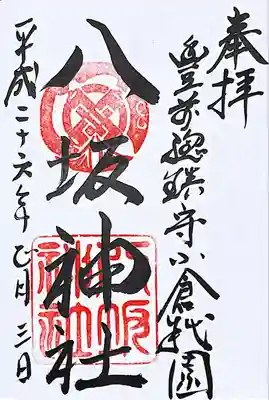 奉拝
豊前総鎮守小倉祇園
八坂神社
平成二十六年乙月三日
八坂神社